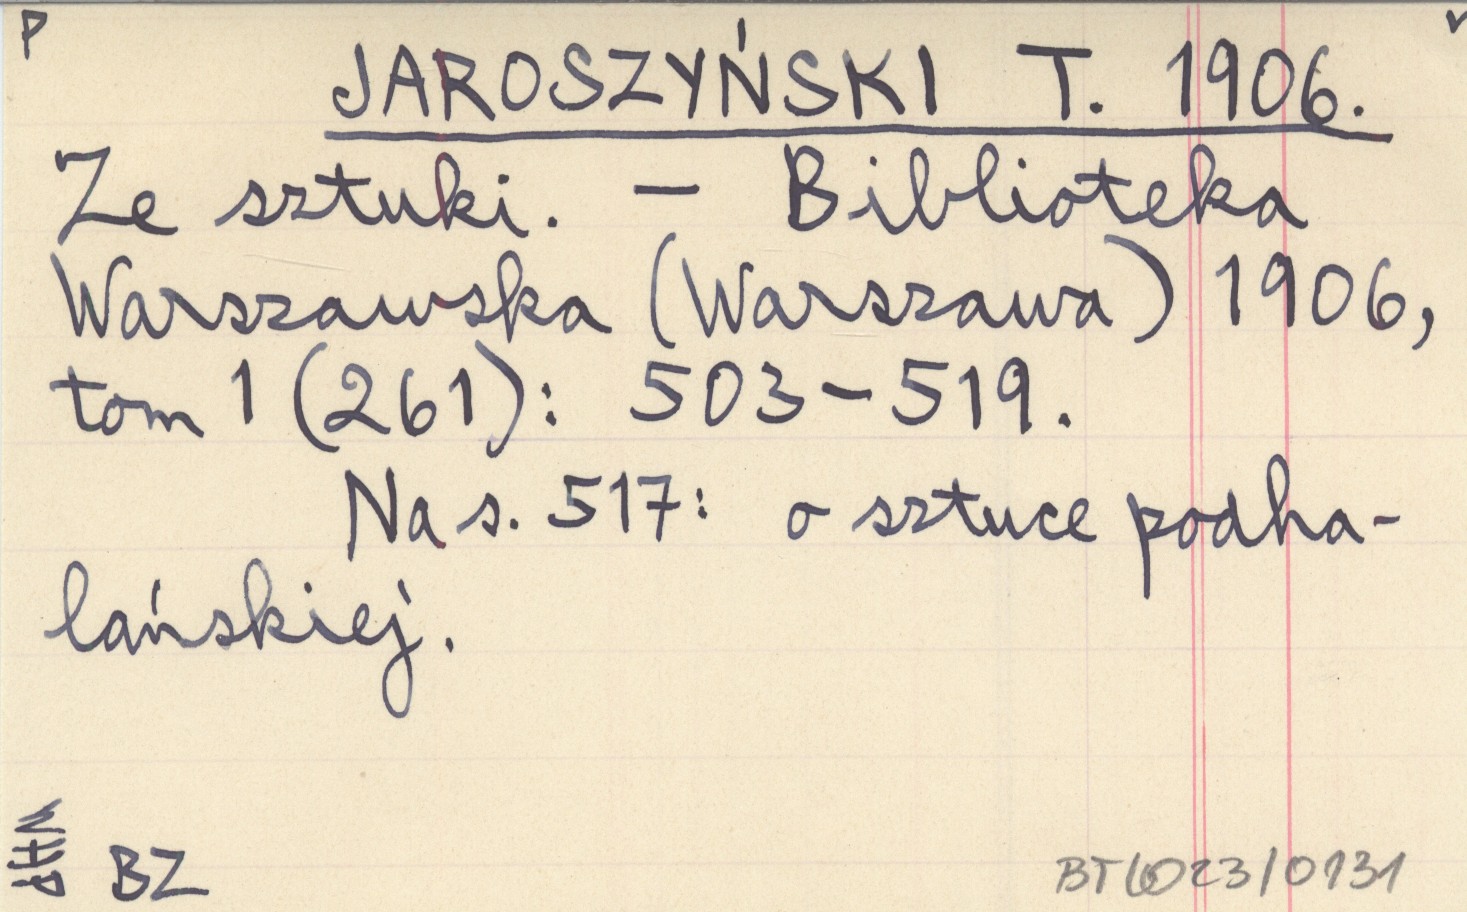 P
JAROSZYŃSKI T. 1906.
Ze sztuki. — Biblioteka
Warszawska (Warszawa) 1906,
tom 1 (261): 503–519.
Na s. 517: o sztuce podha-
lańskiej.
BZ